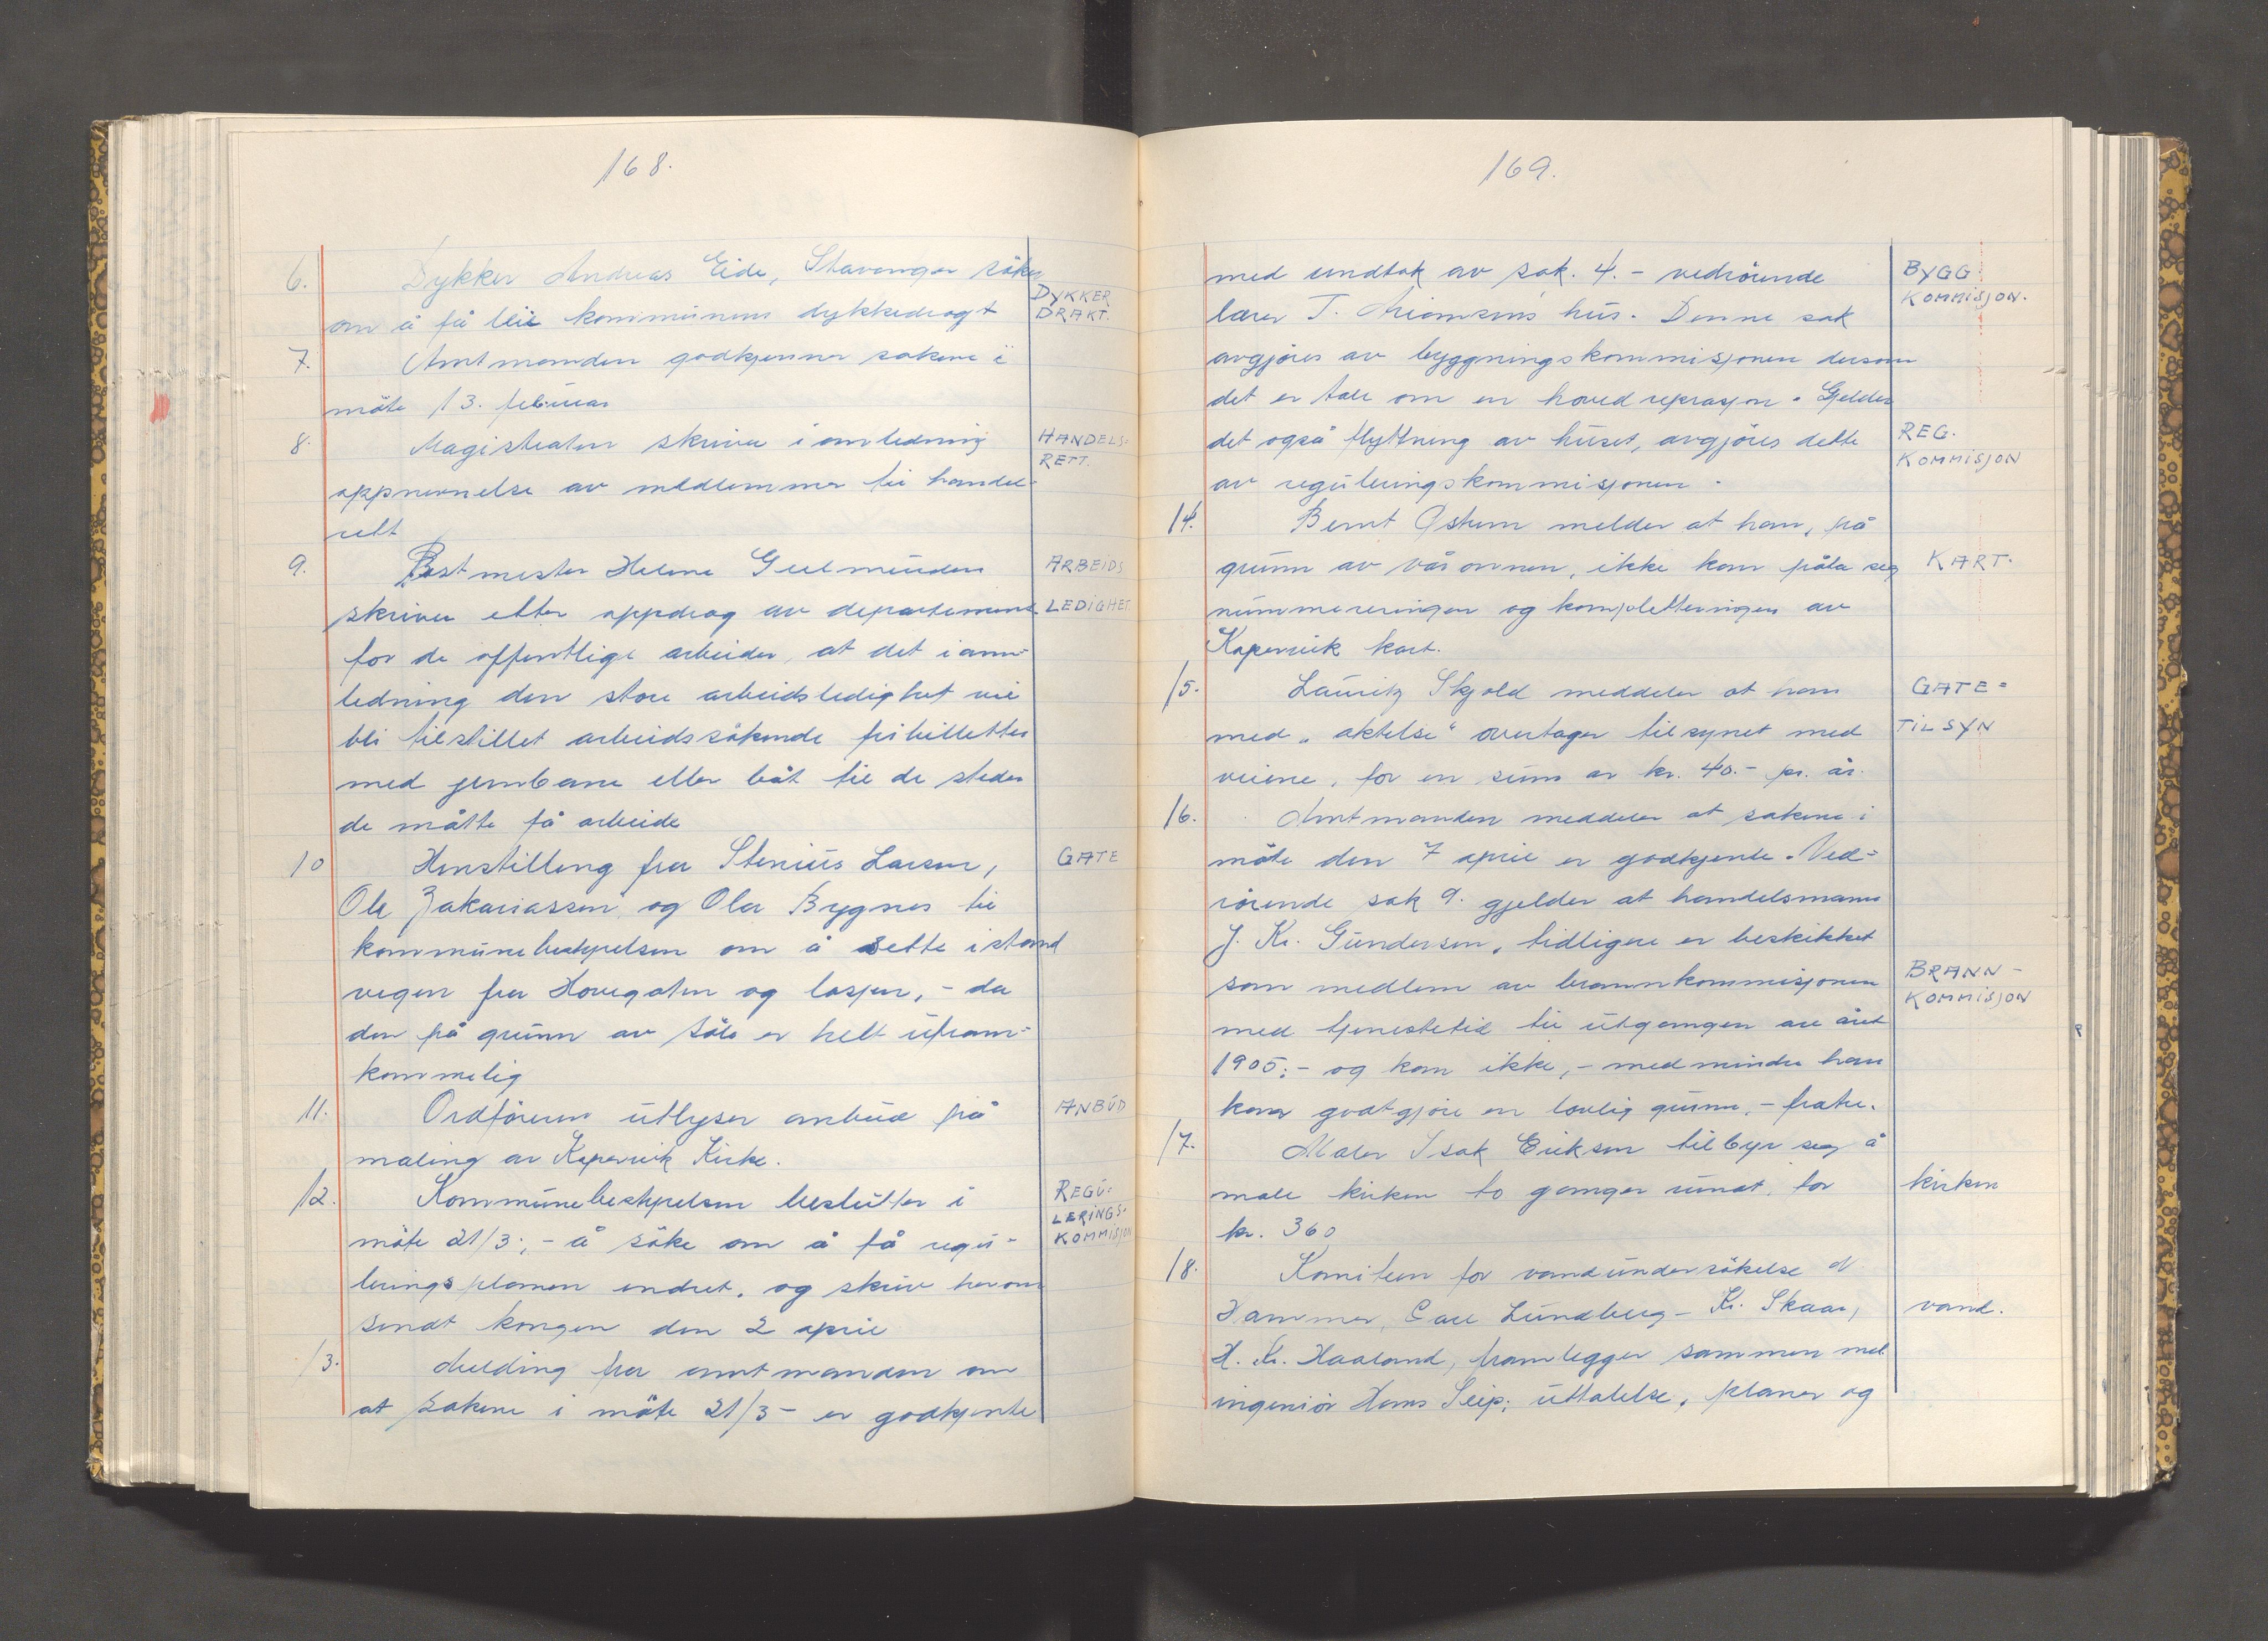 168.
6. Dykker Andreas Eide, Stavanger söker
DYKKER
DRAKT.
om å få leie kommunens dykkedragt
7. Amtmanden godkjenner sakene i
möte 13. februar
8. Magistraten skriver i anledning
HANDELS-
RETT.
oppnevnelse av medlemmer til handel-
rett
9. Postmester Helene Gulmunden
ARBEIDS
skriver etter oppdrag av departement
LEDIGHET
for de offentlige arbeider, at det i ann-
ledning den store arbeidsledighet vil
bli tilstillet arbeidssökende fribilletter
med jernbane eller båt til de steder
de måtte få arbeide
10 Henstilling fra Stenius Larsen,
GATE
Ole Zakariassen, og Ola Bygnes til
kommunebestyrelsen om å sette istand
vegen fra Hovegaten og lasjen, - da
den på grunn av söle er helt ufram-
kommelig
11. Ordföreren utlyser anbud på
ANBUD
maling av Kopervik Kirke.
12. Kommunebestyrelsen beslutter i
REGU-
LERINGS-
KOMMISJON
möte 21/3; - å söke om å få regu-
leringsplanen endret, og skriv herom
sendt kongen den 2 april
13. Melding fra amtmanden om
at sakene i möte 21/3 - er godkjente
169.
med undtak av sak. 4. - vedrörende
BYGG
KOMMISJON.
lærer T. hus. Denne sak
avgjöres av byggningskommisjonen dersom
det er tale om en hovedreprasjon. Gjelder
det også flyttning av huset, avgjöres dette
REG.
KOMMISJON
av reguleringskommisjonen.
14. Bernt Østhun melder at han, på
grunn av våronnen, ikke kan påta seg
KART.
nummereringen og kompletteringen av
Kopervik kart.
15. Lauritz Skjold meddeler at han
GATE=
med „aktelse“ overtager tilsynet med
TILSYN
veiene, for en sum av kr. 40.- pr. år.
16. Amtmanden meddeler at sakene i
möte den 7 april er godkjente. Ved=
rörende sak 9. gjelder at handelsmann
J. Kr. Gundersen, tidligere er beskikket
som medlem av brannkommisjonen
BRANN-
KOMMISJON
med tjenestetid til utgangen av året
1905; - og kan ikke, - med mindre han
kan godtgjöre en lovlig grunn, - fratre.
17. Maler Isak Eriksen tilbyr seg å
male kirken to ganger unat, for
kirken
kr. 360
18. Komiteen for vandundersökelse
Hammer, Carl Lundberg - Kr. Skaar,
vand.
H. Kr. Haaland, framlegger sammen med
ingeniör Hans Seip; uttalelse, planer og